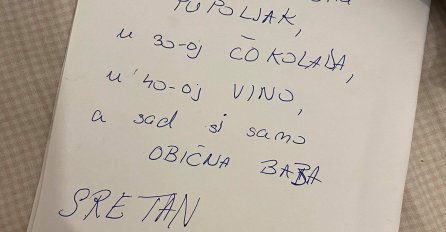 PUPOLJAK,
u 30-oj ČOKOLADA,
u 40-oj VINO,
a sad si samo
OBIČNA BABA
SRETAN